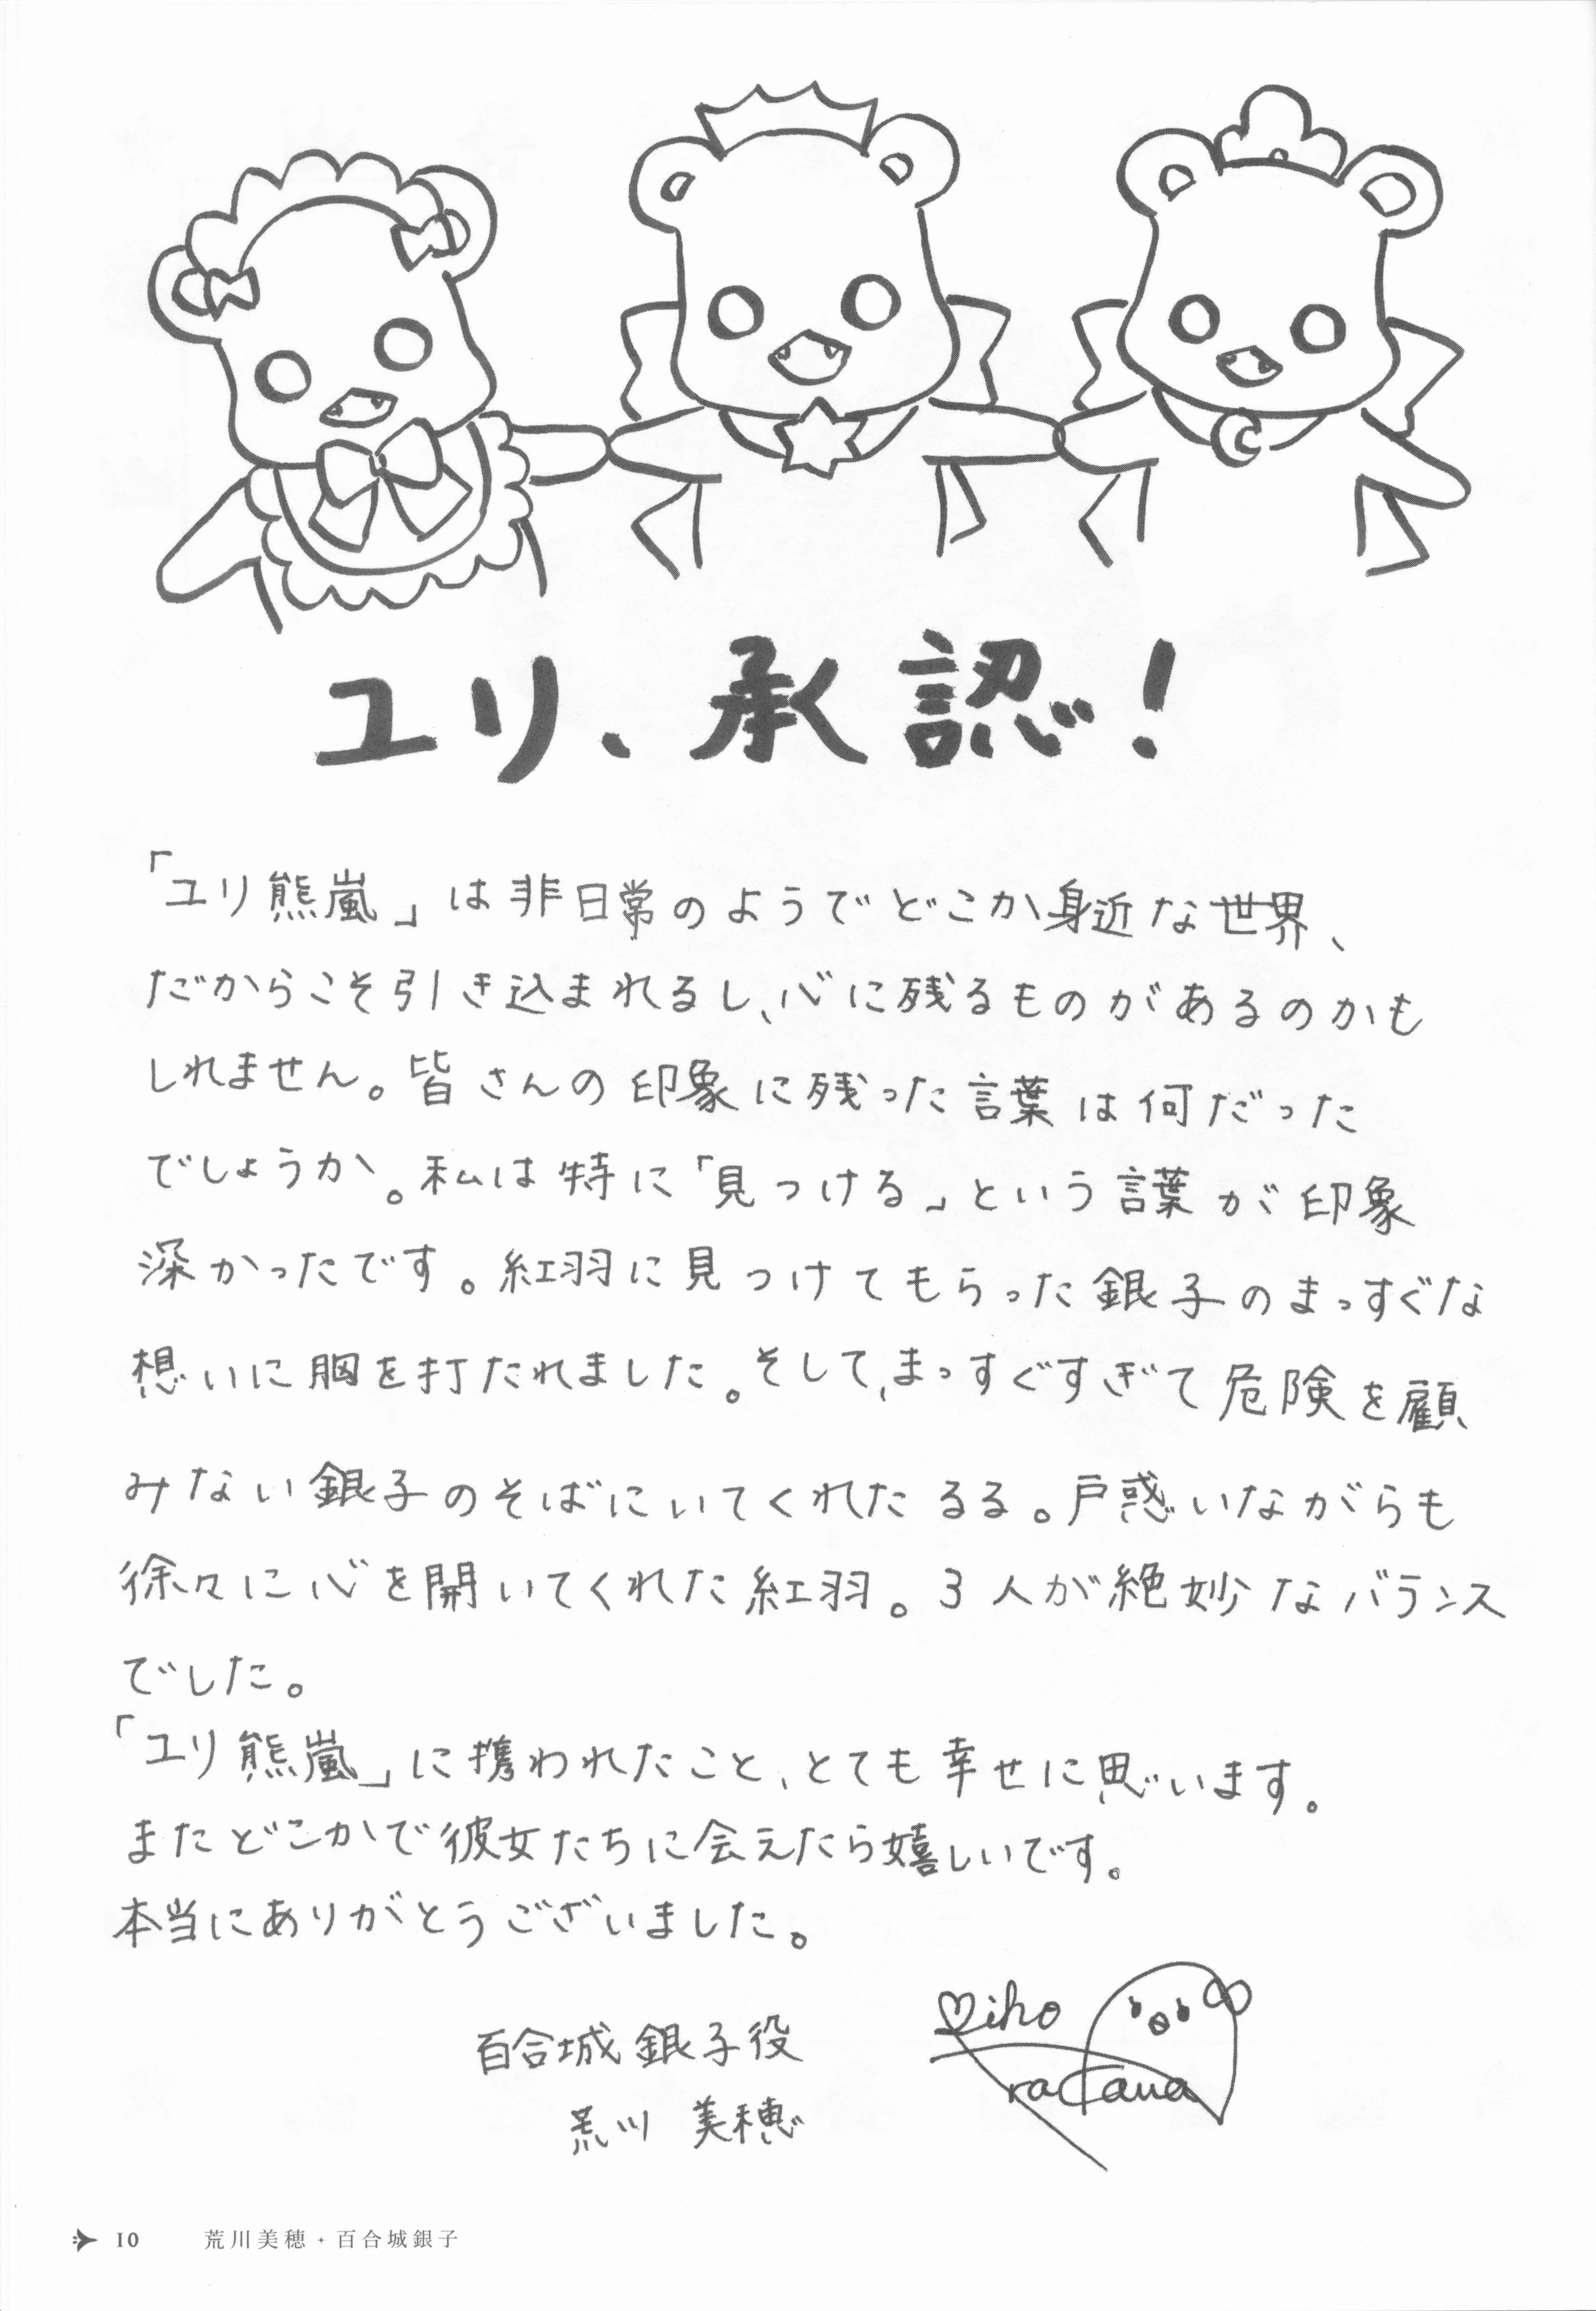 ユリ、承認!
「ユリ熊嵐」は非日常のようでどこか身近な世界、
だからこそ引き込まれるし、心に残るものがあるのかも
しれません。皆さんの印象に残った言葉は何だった
でしょうか。私は特に「見つける」という言葉が印象
深かったです。紅羽に見つけてもらった銀子のまっすぐな
想いに胸を打たれました。そして、まっすぐすぎて危険を顧
みない銀子のそばにいてくれたるる。戸惑いながらも
徐々に心を開いてくれた紅羽。3人が絶妙なバランス
でした。
「ユリ熊嵐」に携われたこと、とても幸せに思います。
またどこかで彼女たちに会えたら嬉しいです。
本当にありがとうございました。
百合城銀子役
荒川 美穂
Miho
rakawa
10 荒川美穂・百合城銀子